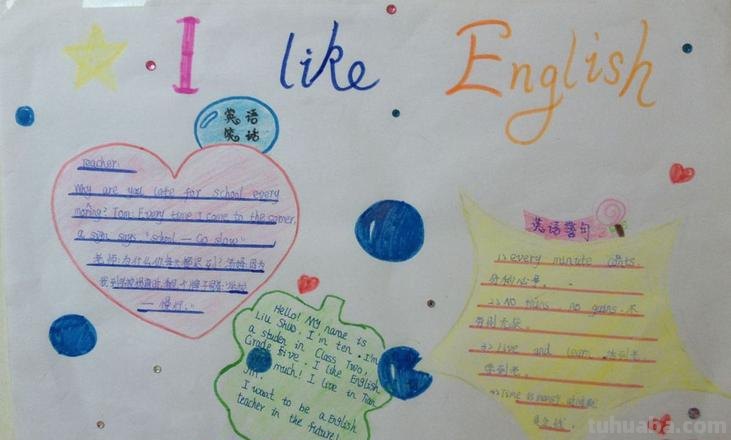 I like English
英语
笑话
Teacher:
Why are you late for school every
morning? Tom: Every time I come to the corner,
a sign says, "school — Go slow".
老师:为什么你每天都迟到?汤姆:因为
— 慢行."
Hello! My name is
Liu Shuo, I'm ten. I'm
a studen in Class Two,
Grade Five. I like English
much! I live in
I want to be a English
teacher in the future!
英语警句
every minute counts
分秒必争.
No pains, no gains. 不
劳则无获.
Live and learn. 活到老,
学到老.
Time is money. 时间就
是金钱.
tuhuaba.com